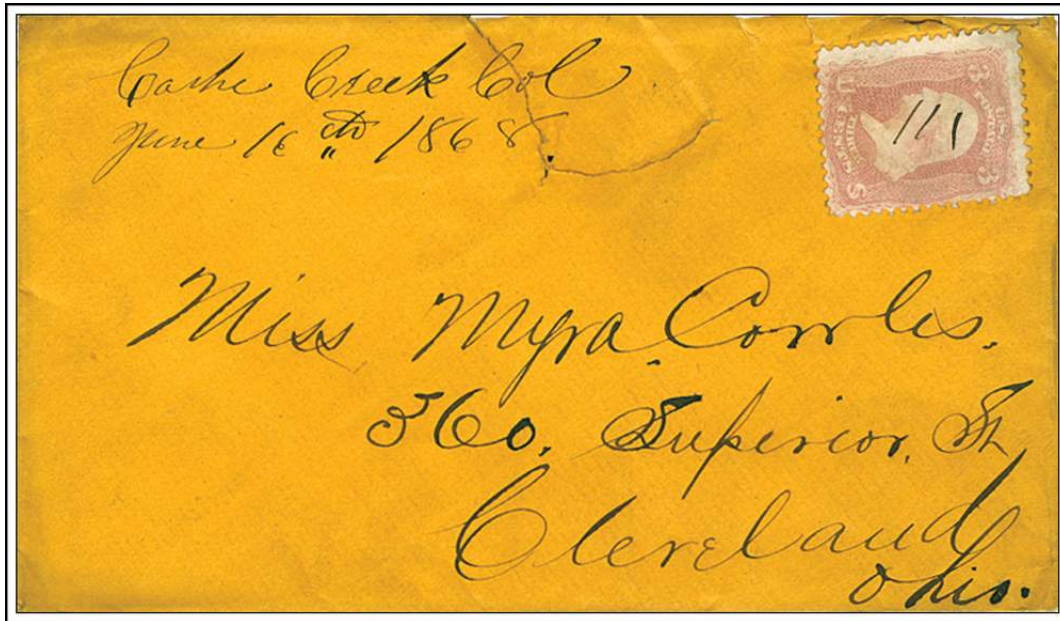 Cashe Creek Col
June 16th 1868.
Miss Myra Cowles.
360. Superior. St
Cleveland
Ohio.